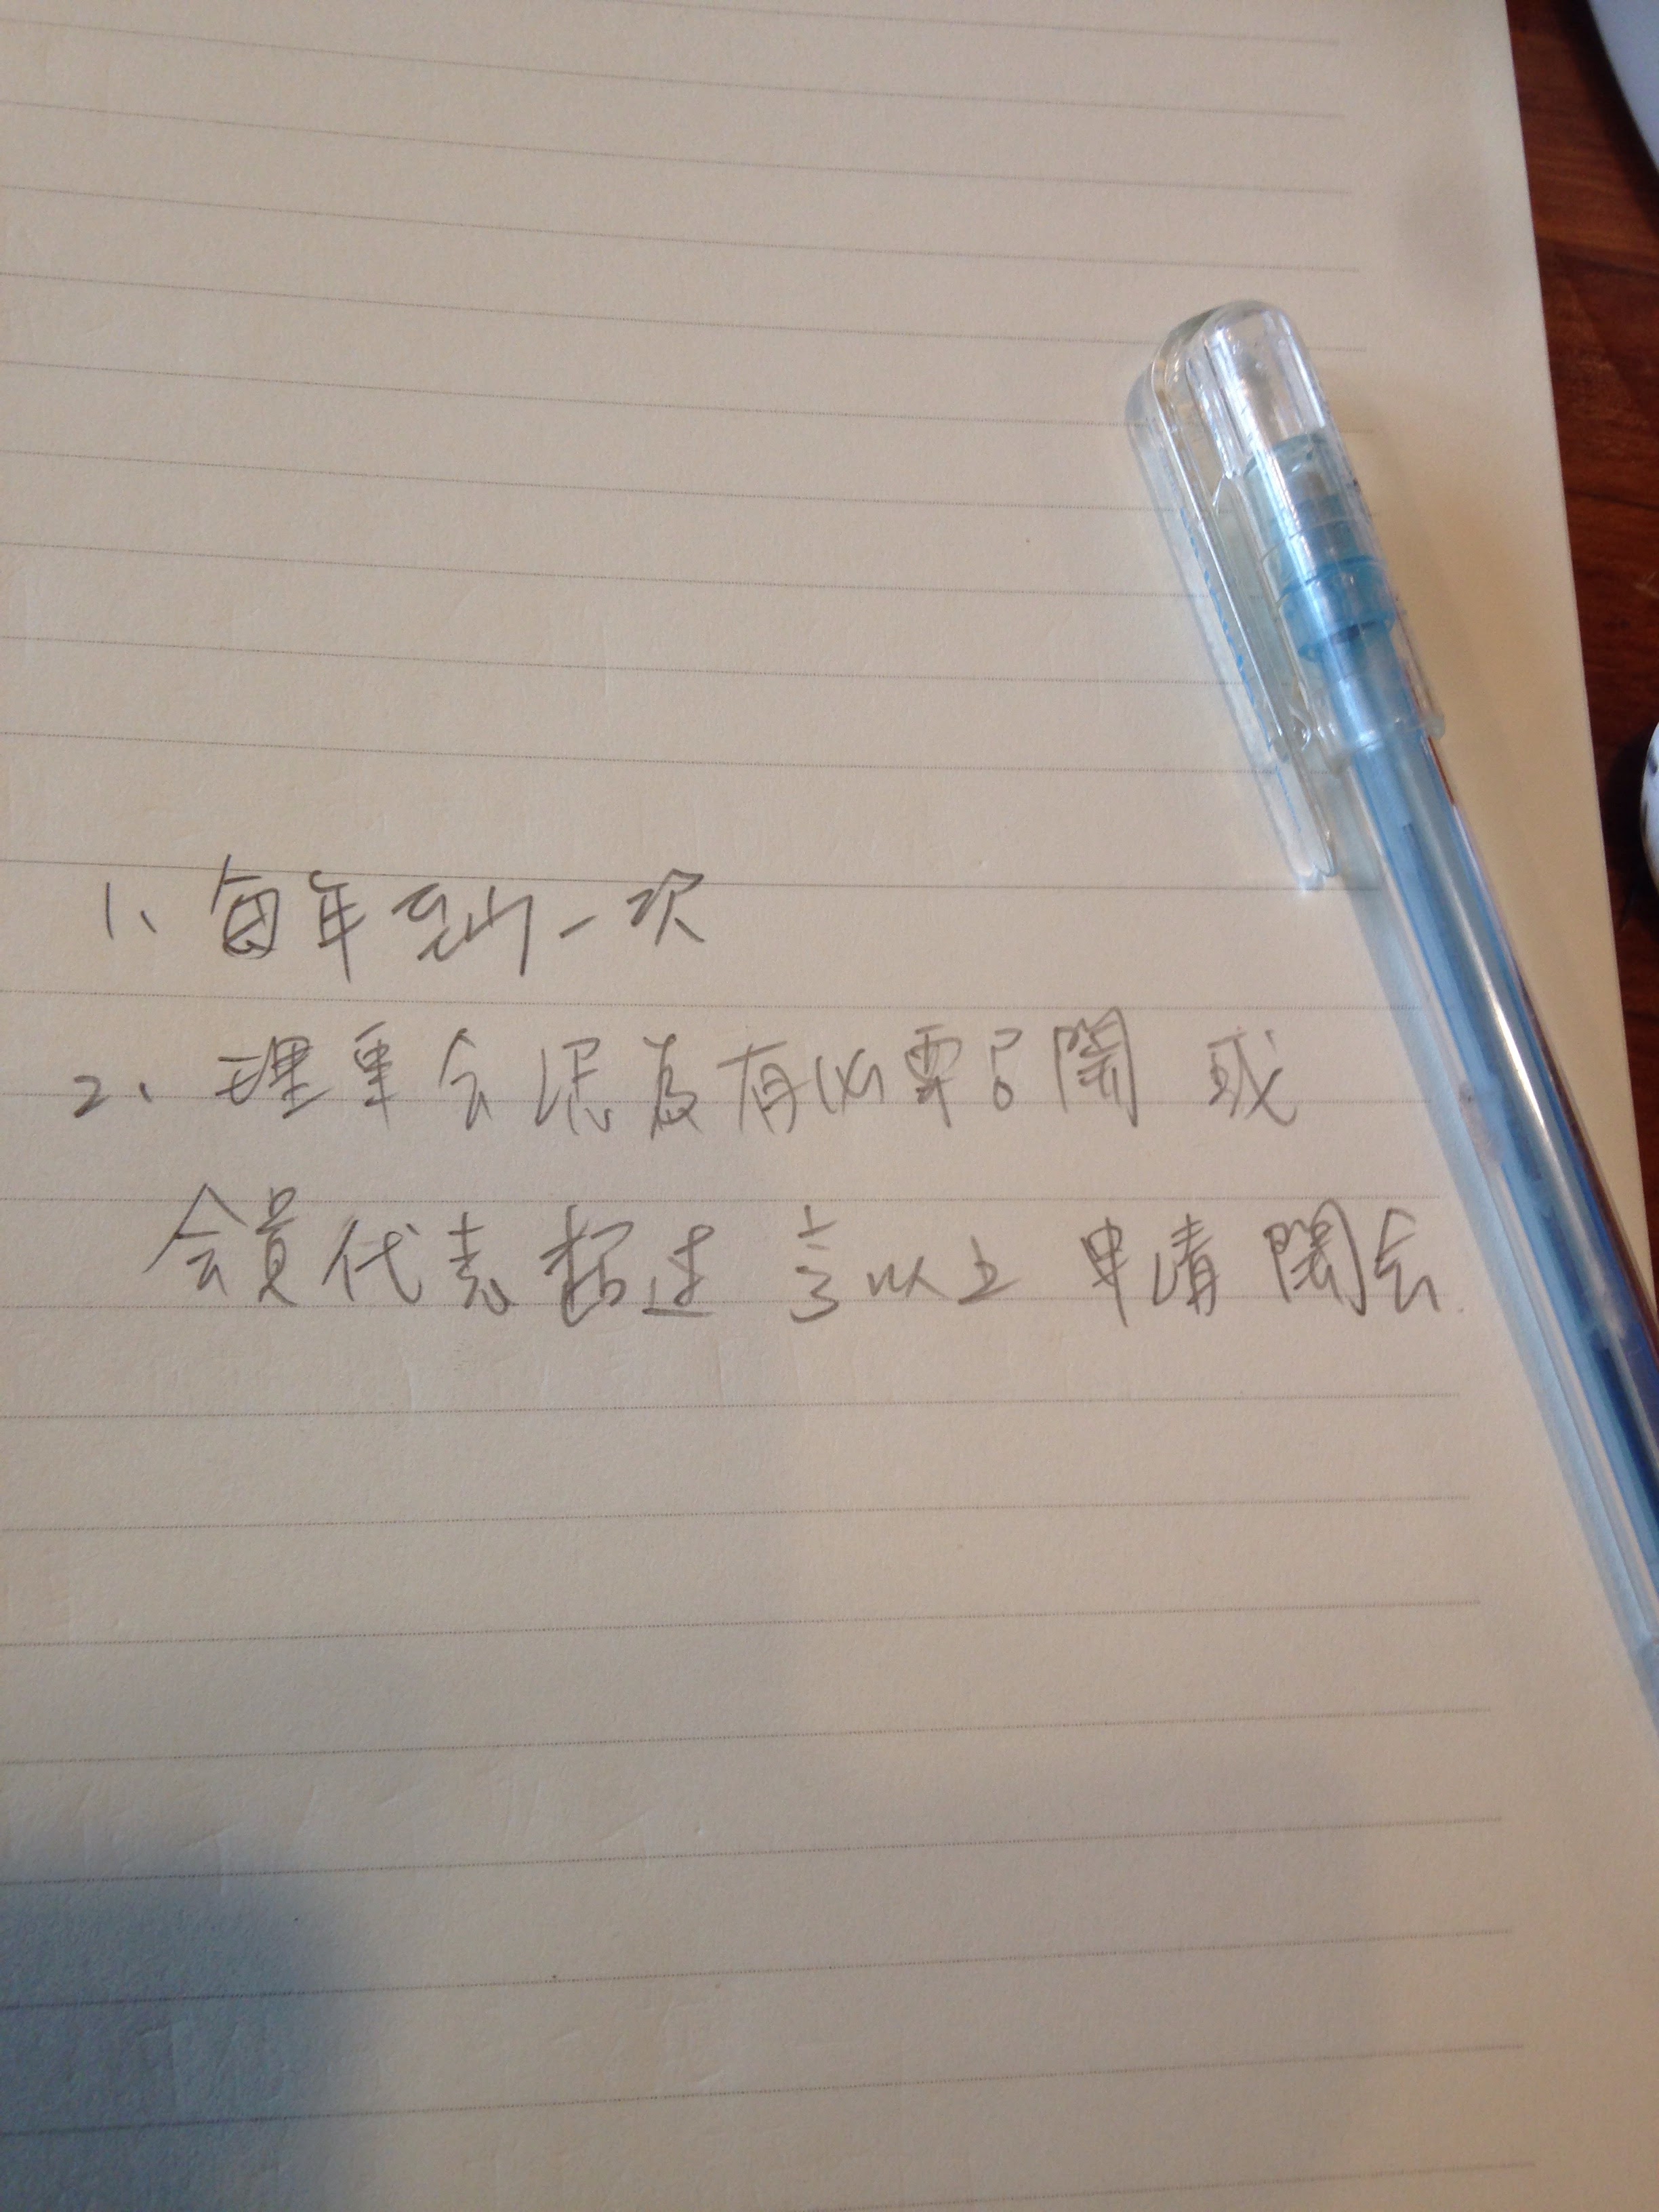 1、每年至少一次
2、理事会認為有必要召開 或
会員代表超过 1/3以上 申請 開会